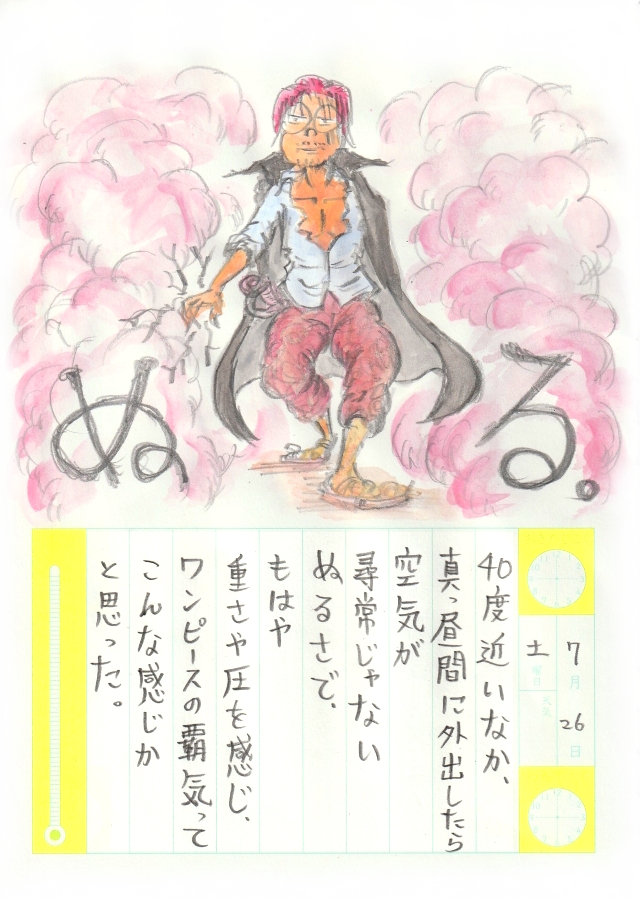 ぬる。
7月26日
土曜日
天気
40度近いなか、
真っ昼間に外出したら
空気が
尋常じゃない
ぬるさで、
もはや
重さや圧を感じ、
ワンピースの覇気って
こんな感じか
と思った。